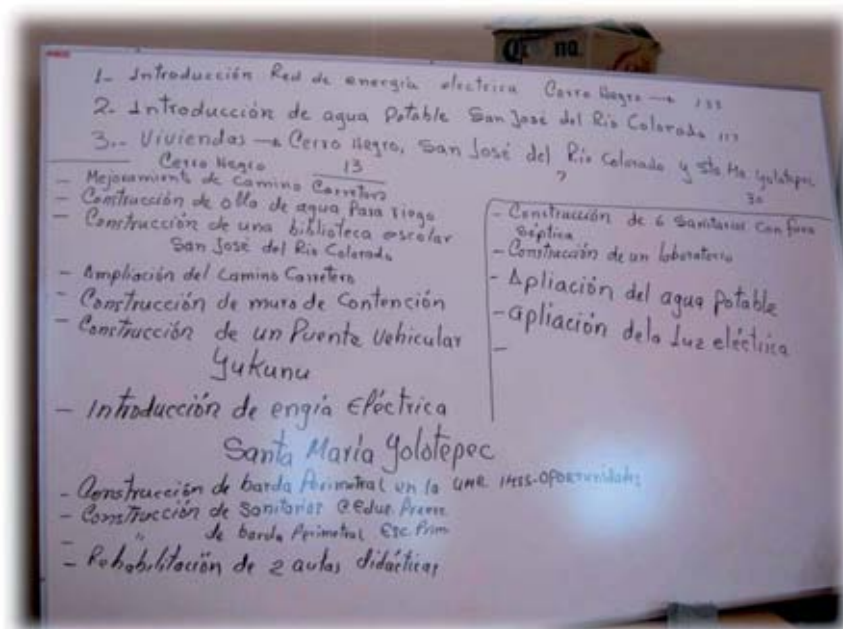 1- Introducción Red de energía electrica Cerro Negro → 133
2- Introducción de agua Potable San José del Rio Colorado 117
3.- Viviendas → Cerro Negro, San José del Rio Colorado y Sta. Ma. Yolotepec
13
?
30
Cerro Negro
- Mejoramiento de Camino Carretero
- Construcción de olla de agua Para riego
- Construcción de una biblioteca escolar
San José del Rio Colorado
- Ampliación del Camino Carretero
- Construcción de muro de Contención
- Construcción de un Puente Vehicular
Yukunu
- Introducción de engía Eléctrica
Santa María Yolotepec
- Construcción de barda Perimetral en la UMR IMSS-OPORTUNIDADES
- Construcción de Sanitarios Educ. Preesc
- " de barda Perimetral Esc. Prim
- Rehabilitación de 2 aulas didácticas
- Construcción de 6 Sanitarios con fosa
Séptica
- Construcción de un laboratorio
- Apliación del agua potable
- apliación dela luz eléctrica
-